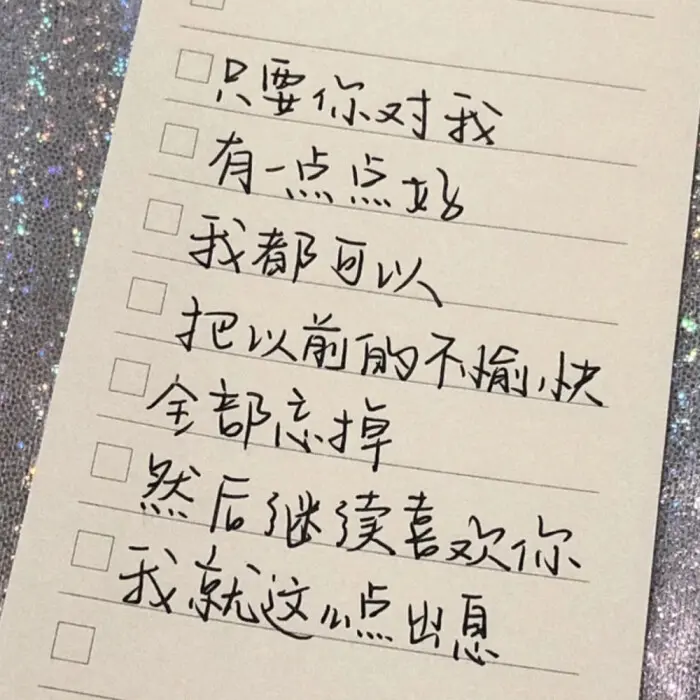 只要你对我
有一点点好
我都可以
把以前的不愉快
全部忘掉
然后继续喜欢你
我就这么点出息